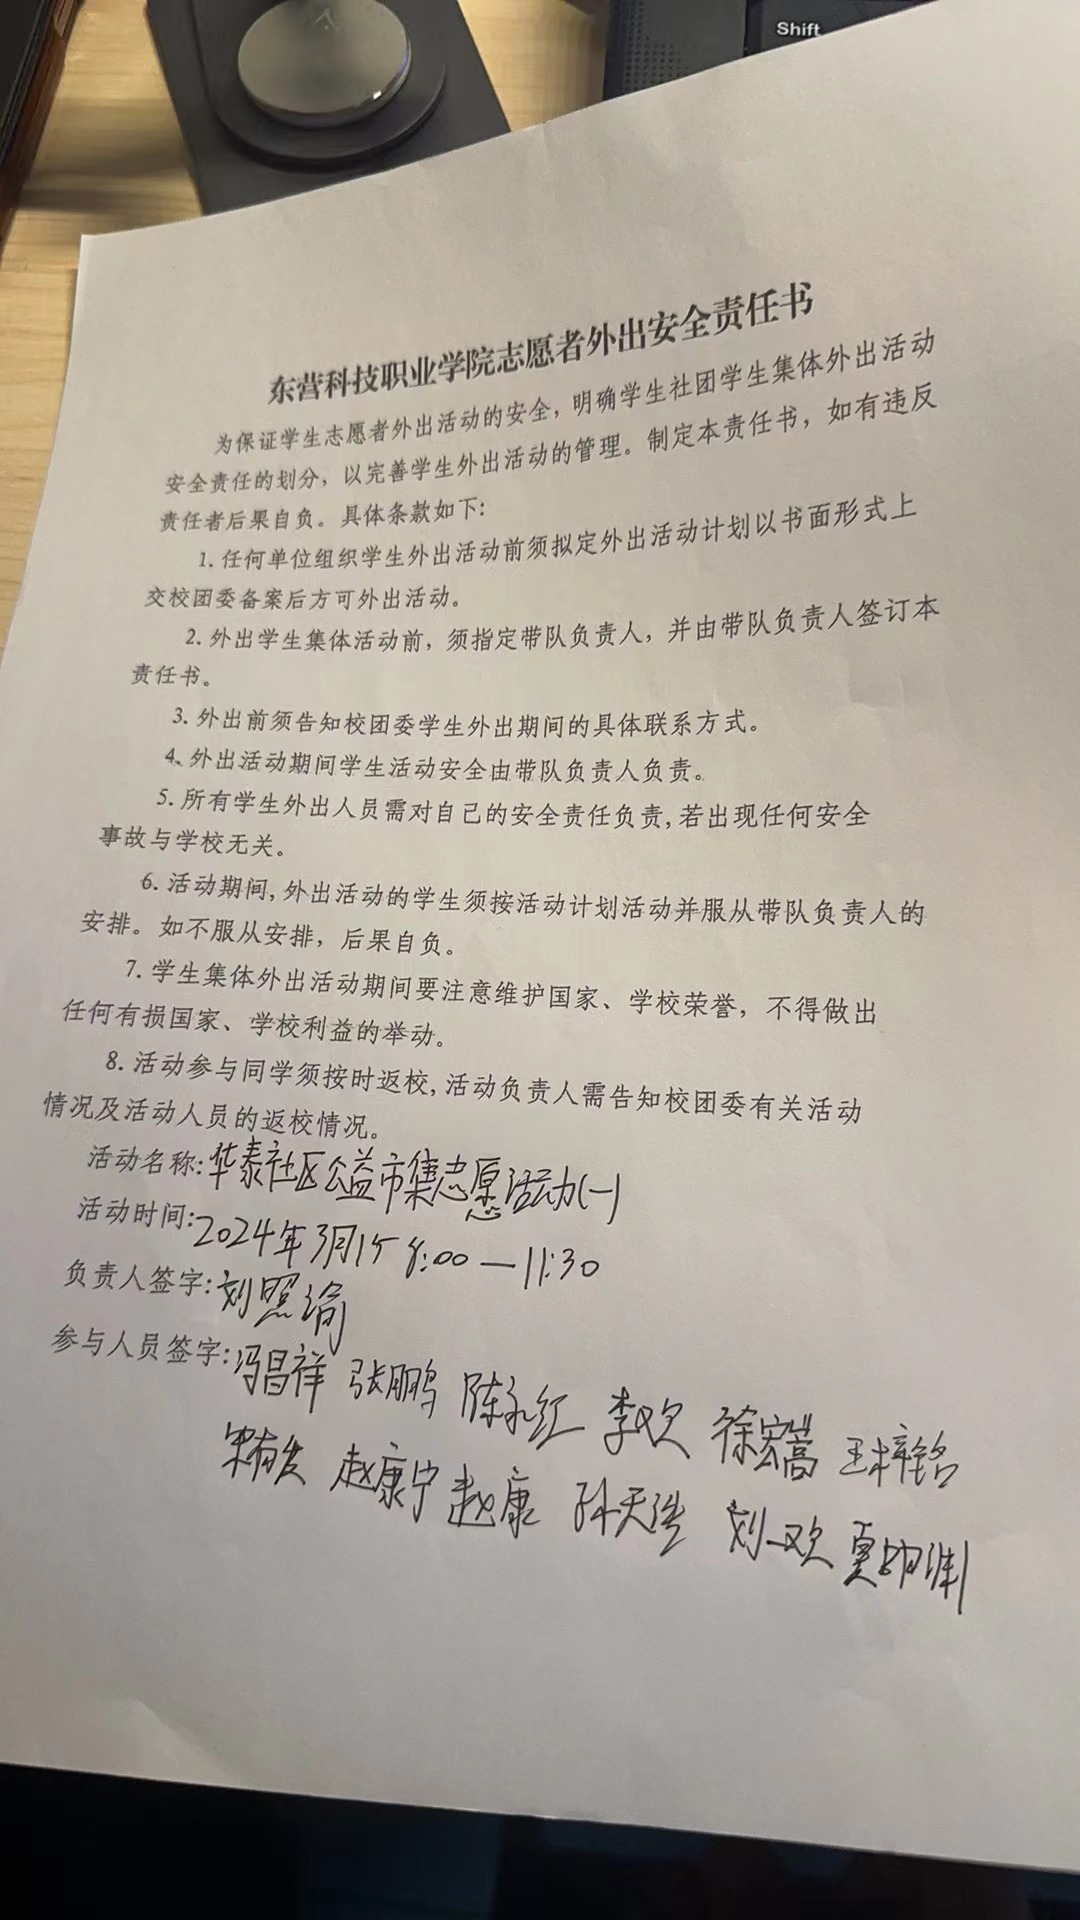 Shift
东营科技职业学院志愿者外出安全责任书
为保证学生志愿者外出活动的安全，明确学生社团学生集体外出活动
安全责任的划分，以完善学生外出活动的管理。制定本责任书，如有违反
责任者后果自负。具体条款如下：
1. 任何单位组织学生外出活动前须拟定外出活动计划以书面形式上
交校团委备案后方可外出活动。
2. 外出学生集体活动前，须指定带队负责人，并由带队负责人签订本
责任书。
3. 外出前须告知校团委学生外出期间的具体联系方式。
4、外出活动期间学生活动安全由带队负责人负责。
5. 所有学生外出人员需对自己的安全责任负责,若出现任何安全
事故与学校无关。
6. 活动期间,外出活动的学生须按活动计划活动并服从带队负责人的
安排。如不服从安排，后果自负。
7. 学生集体外出活动期间要注意维护国家、学校荣誉，不得做出
任何有损国家、学校利益的举动。
8. 活动参与同学须按时返校,活动负责人需告知校团委有关活动
情况及活动人员的返校情况。
活动名称:华泰社区公益市集志愿活动(一)
活动时间:2024年3月15 8:00—11:30
负责人签字:刘照渝
参与人员签字:冯昌祥 张鹏 陈永红 李欢 徐宏嵩 王梓铭
宋有发 赵康宁 赵康 孙天浩 刘欢 夏明渊